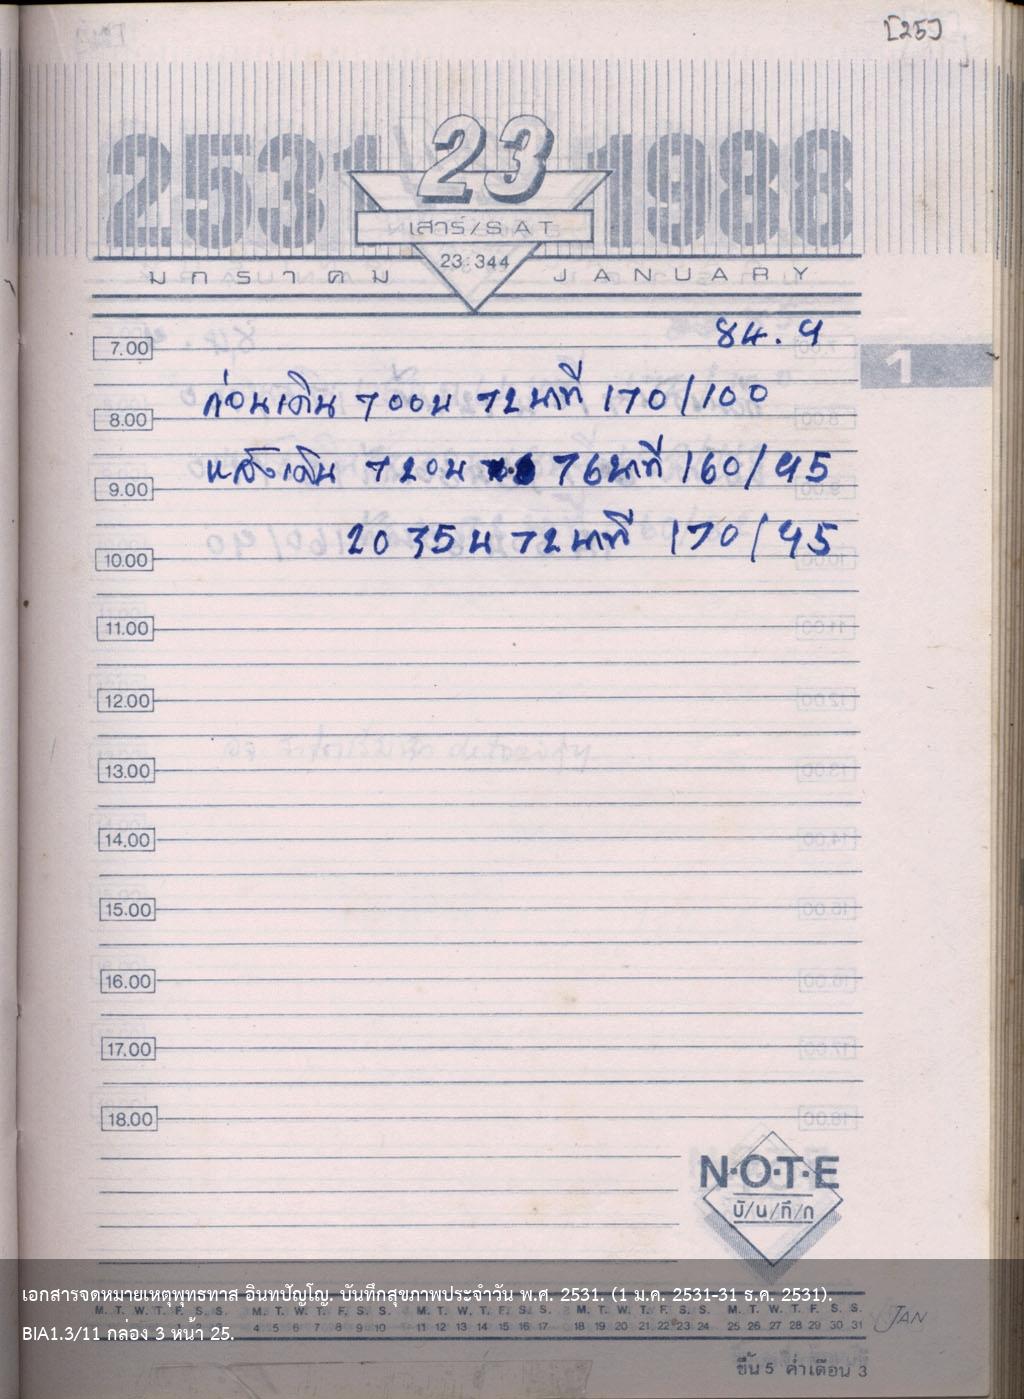 [25]
2531 23 1988
เสาร์/SAT
23 344
มกราคม JANUARY
84.9
7.00
ก่อนเดิน 700น 72นาที 170/100
8.00
หลังเดิน 720น 76นาที 160/95
9.00
2035น 72นาที 170/95
10.00
11.00
12.00
13.00
14.00
15.00
16.00
17.00
18.00
1
N·O·T·E
บั/น/ทึ/ก
เอกสารจดหมายเหตุพุทธทาส อินทปัญโญ. บันทึกสุขภาพประจำวัน พ.ศ. 2531. (1 ม.ค. 2531-31 ธ.ค. 2531).
M. T. W. T. F. S. S. M. T. W. T. F. S. S. M. T. W. T. F. S. S. M. T. W. T. F. S. S. M. T. W. T. F. S. S.
1 2 3 4 5 6 7 8 9 10 11 12 13 14 15 16 17 18 19 20 21 22 23 24 25 26 27 28 29 30 31 JAN
BIA1.3/11 กล่อง 3 หน้า 25.
ขึ้น 5 ค่ำเดือน 3